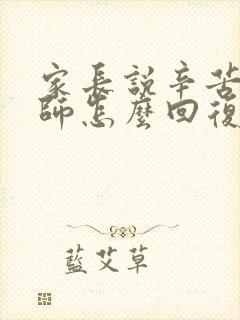 家長說辛苦
師怎麼回復
藍艾草